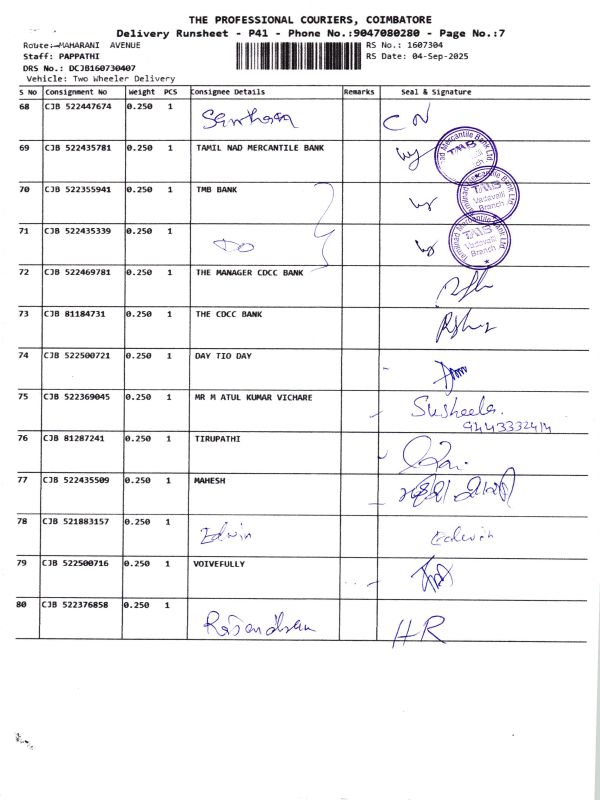 THE PROFESSIONAL COURIERS, COIMBATORE
Delivery Runsheet - P41 - Phone No.:9047080280 - Page No.:7
Route:-MAHARANI AVENUE RS No.: 1607304
Staff: PAPPATHI RS Date: 04-Sep-2025
DRS No.: DCJB160730407
Vehicle: Two Wheeler Delivery
S No Consignment No Weight PCS Consignee Details Remarks Seal & Signature
68 CJB 522447674 0.250 1 CN
69 CJB 522435781 0.250 1 TAMIL NAD MERCANTILE BANK
Tamilnad Mercantile Bank Ltd TMB
70 CJB 522355941 0.250 1 TMB BANK
Tamilnad Mercantile Bank Ltd. TMB Vadavalli Branch
71 CJB 522435339 0.250 1 DO
Tamilnad Mercantile Bank Ltd. TMB Vadavalli Branch
72 CJB 522469781 0.250 1 THE MANAGER CDCC BANK
73 CJB 81184731 0.250 1 THE CDCC BANK
74 CJB 522500721 0.250 1 DAY TIO DAY
75 CJB 522369045 0.250 1 MR M ATUL KUMAR VICHARE Susheela.
9443332414
76 CJB 81287241 0.250 1 TIRUPATHI
77 CJB 522435509 0.250 1 MAHESH
78 CJB 521883157 0.250 1 Edwin Edwin
79 CJB 522500716 0.250 1 VOIVEFULLY
80 CJB 522376858 0.250 1 Rajendran HR